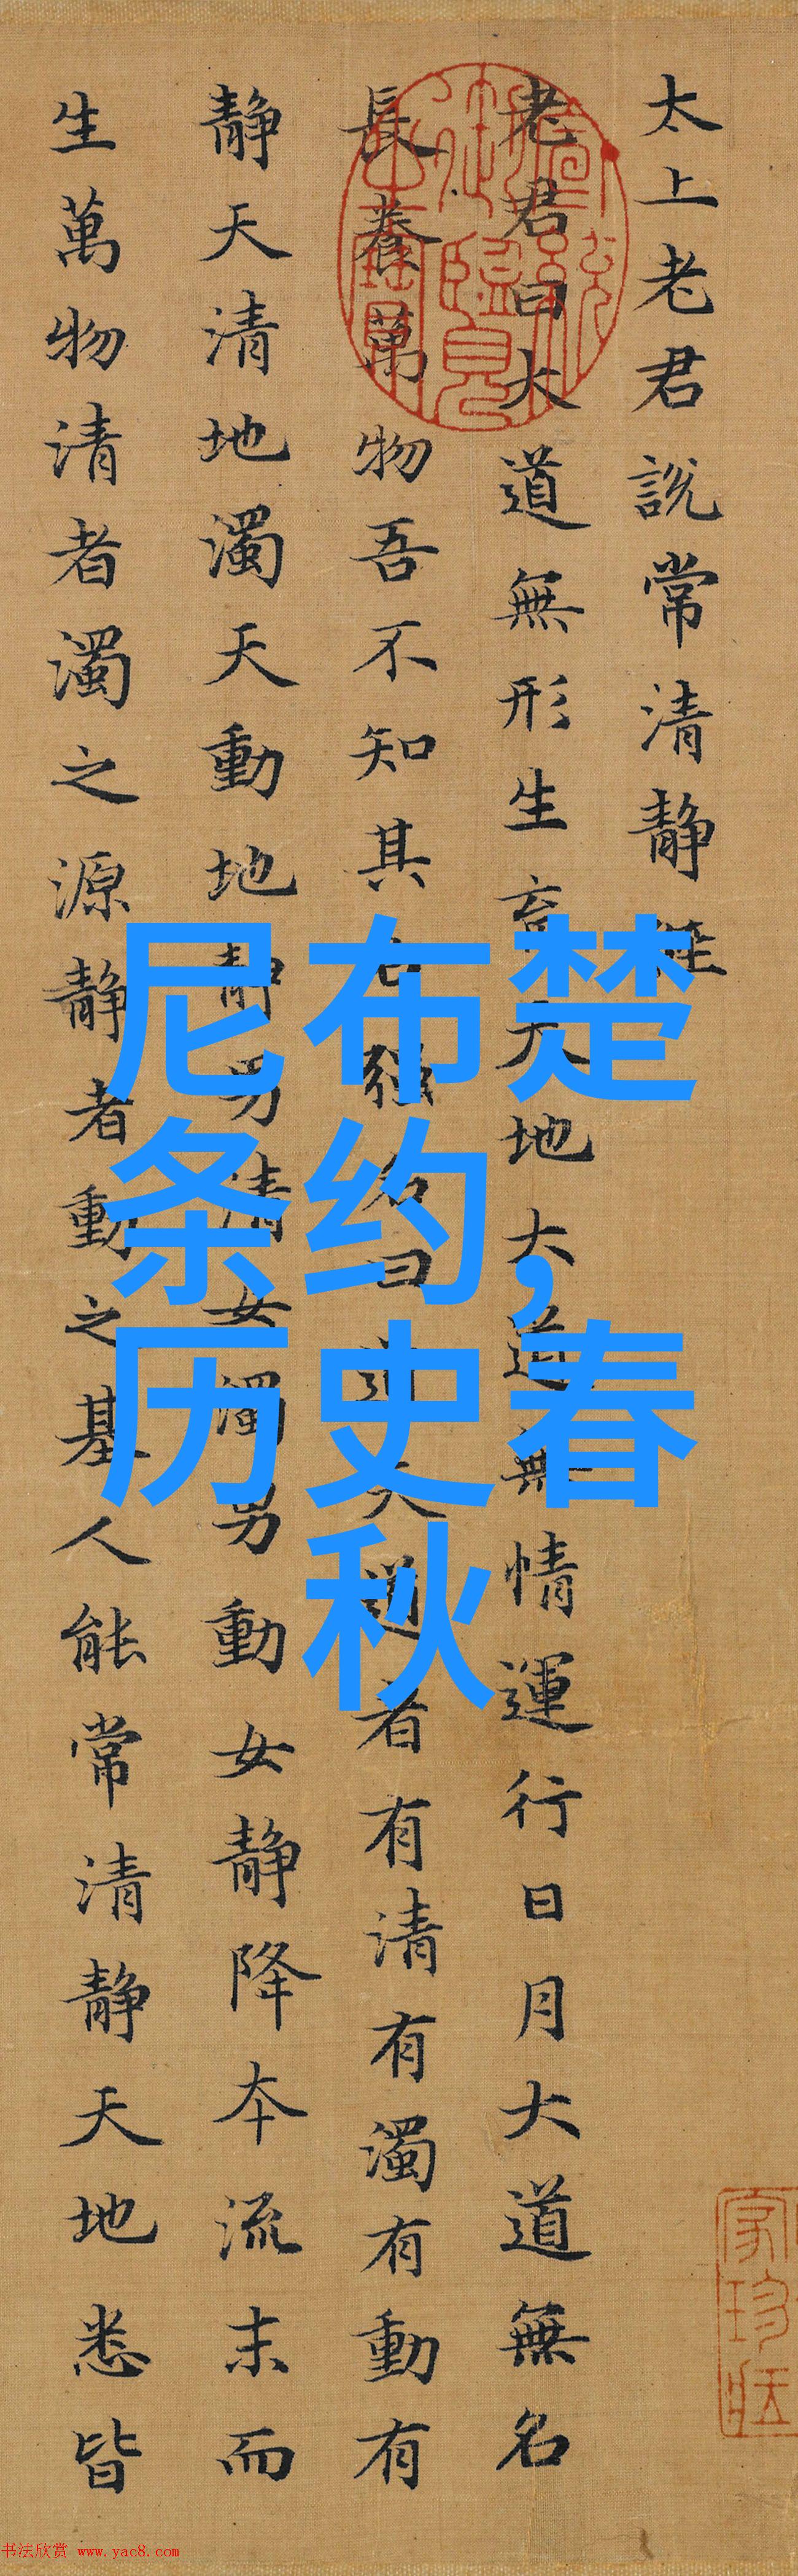 太上老君說常清静經
老君曰大道無形生育天地大道無情運行日月大道無名
長養萬物吾不知其名強名曰道夫道者有清有濁有動有
静天清地濁天動地静男清女濁男動女静降本流末而
生萬物清者濁之源静者動之基人能常清静天地悉皆
宣統御覽之寶
尼布楚
条约，
历史春
秋
书法欣赏 www.yac8.com